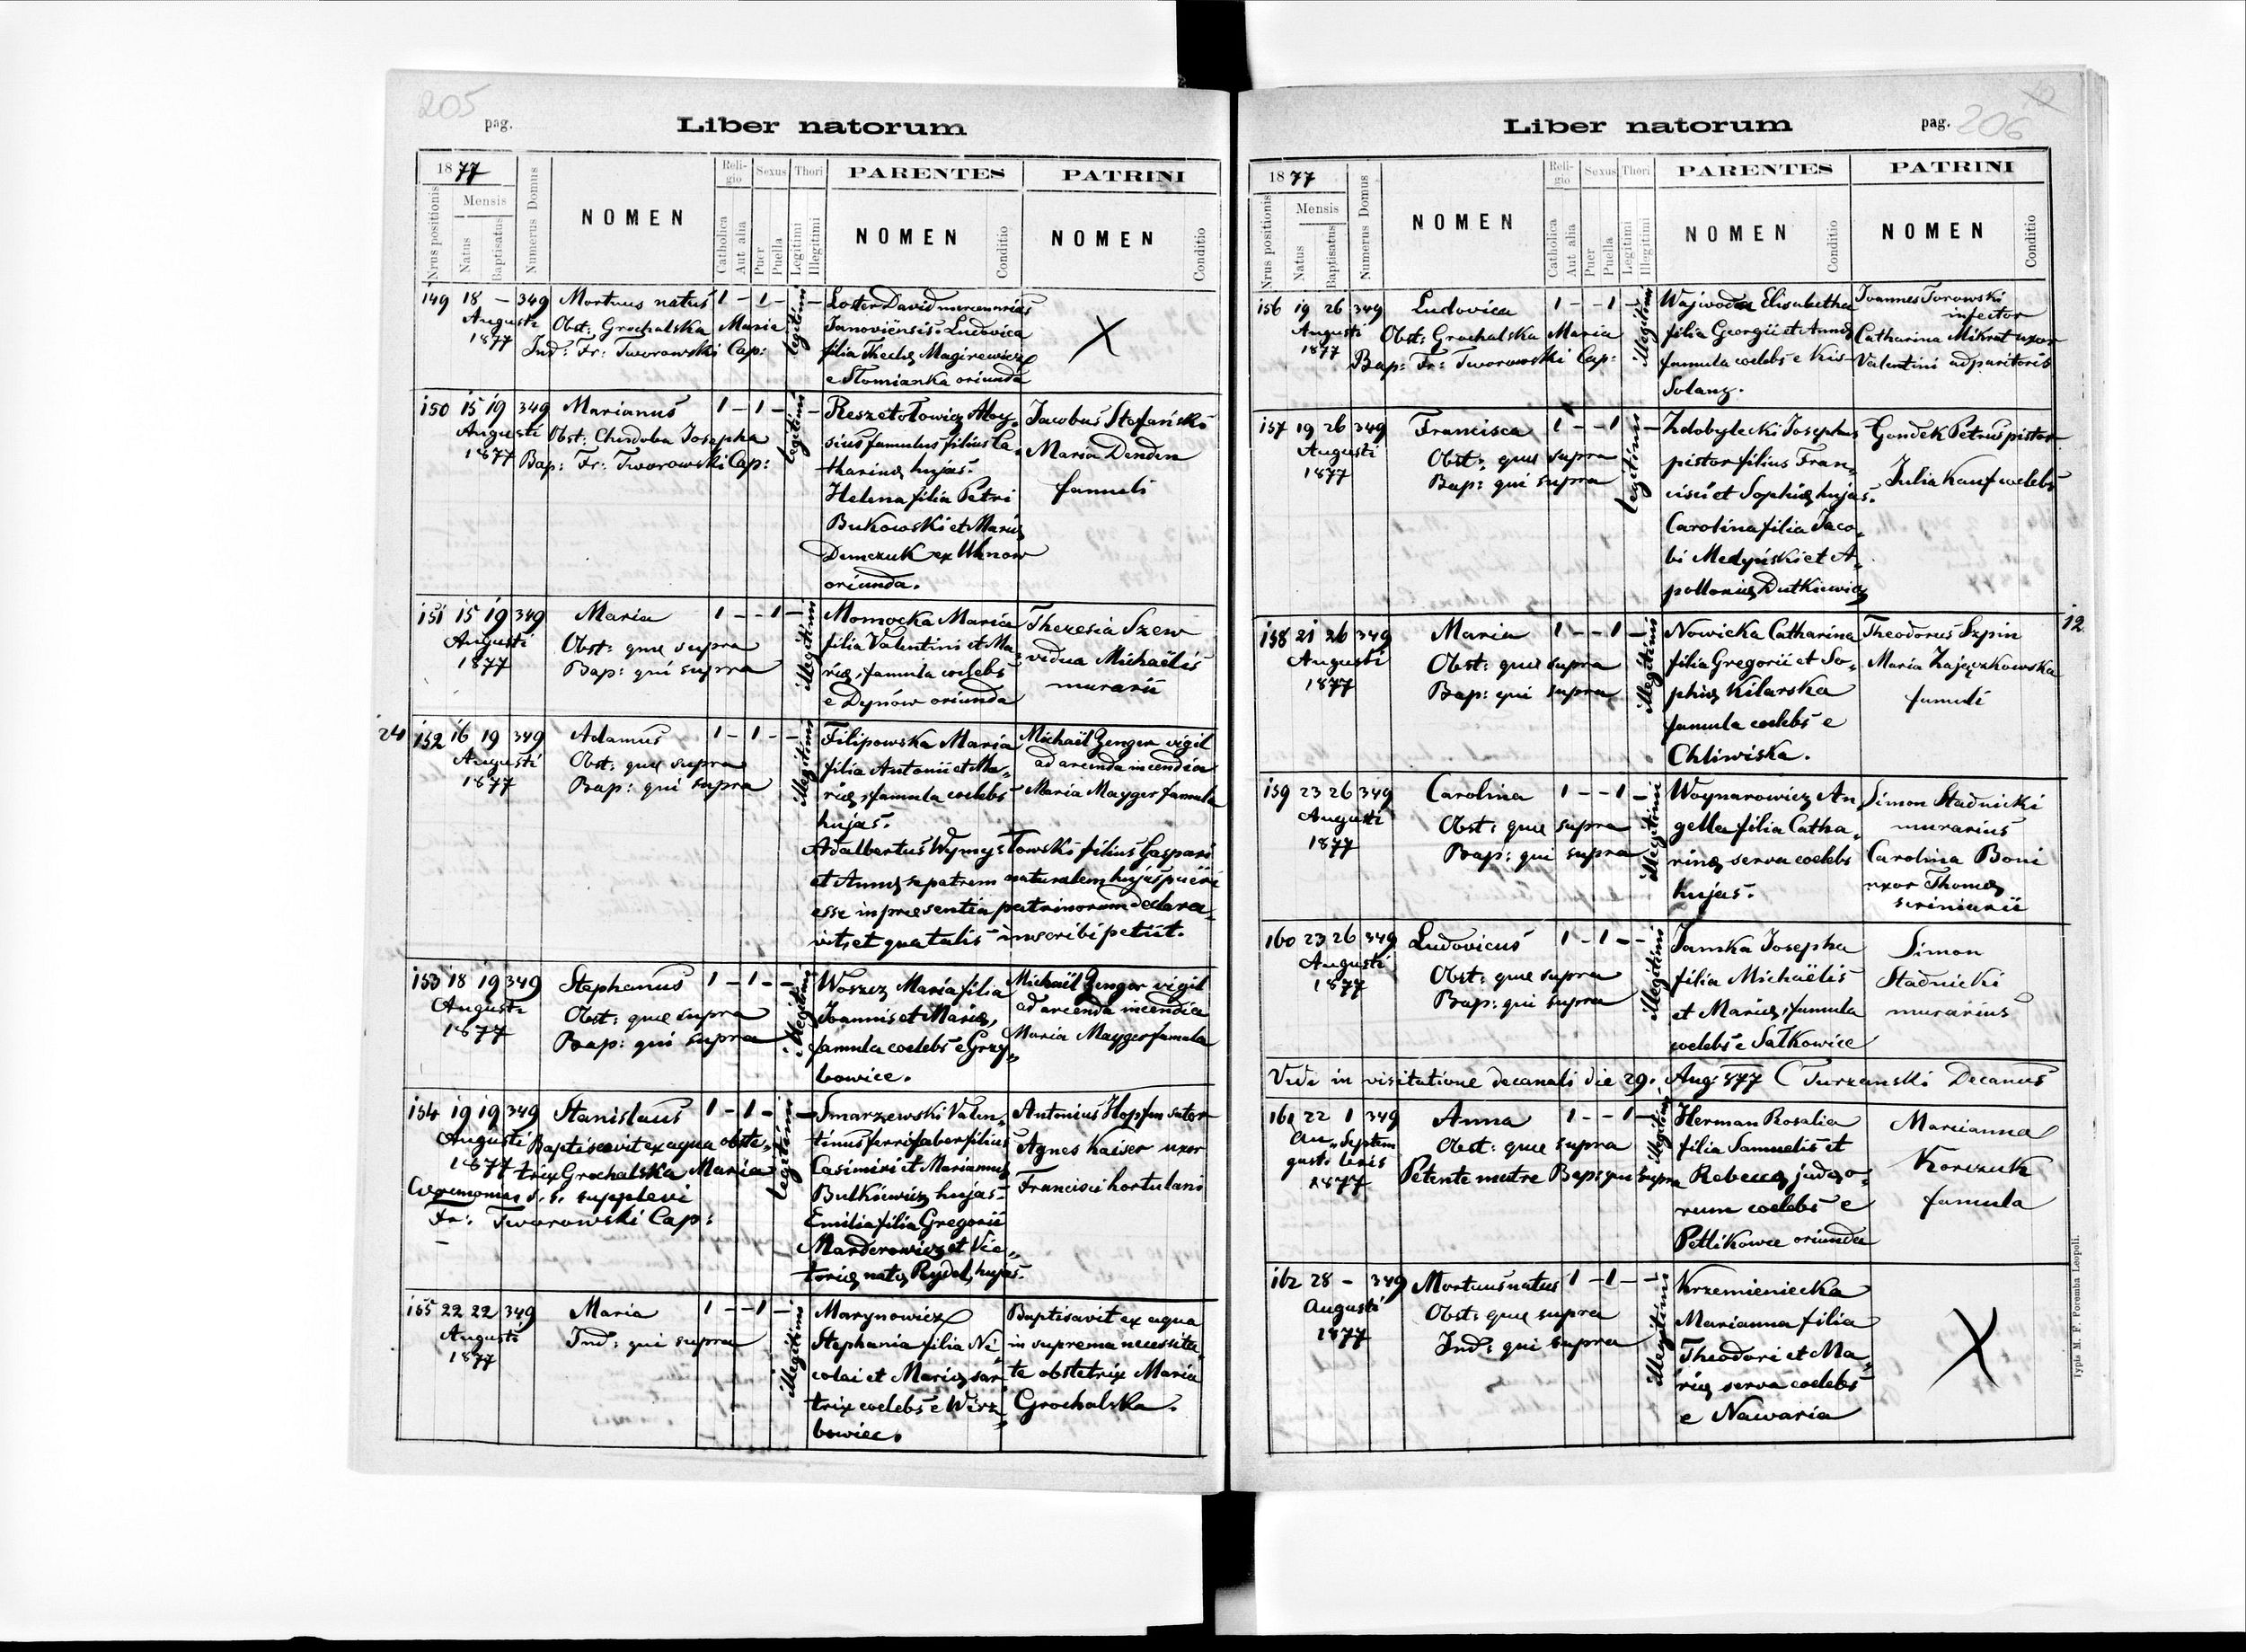 205
pag.
Liber natorum
1877
Nrus positionis
Mensis
Natus
Baptisatus
Numerus Domus
NOMEN
Religio
Catholica
Aut alia
Sexus
Puer
Puella
Thori
Legitimi
Illegitimi
PARENTES
NOMEN
Conditio
PATRINI
NOMEN
Conditio
149 18 – 349 Mortuus natus 1 – 1 – –
Augusti
1877
Obst: Grochalska Maria
Ind: Fr: Tworowski Cap:
legitimi
Loster David mercenarius
Janoviensis Ludovica
filia Theclæ Magirewicz
e Słomianka oriunda
150 15 19 349 Marianus 1 – 1 – –
Augusti
1877
Obst: Chudoba Josepha
Bap: Fr: Tworowski Cap:
legitimi
Reszetołowicz Aloy„
sius famulus filius Ca„
tharinæ hujas.
Helena filia Petri
Bukowski et Mariæ
Demczuk ex Uhnow
oriunda.
Jacobus Stefański
Maria Denden
famuli
151 15 19 349 Maria 1 – – 1 –
Augusti
1877
Obst: quæ supra
Bap: qui supra
illegitimi
Momocka Maria
filia Valentini et Ma„
riæ, famula coelebs
e Dynów oriunda
Theresia Szew
vidua Michaëlis
murarii
24
152 16 19 349 Adamus 1 – 1 – –
Augusti
1877
Obst: quæ supra
Bap: qui supra
illegitimi
Filipowska Maria
filia Antonii et Ma„
riæ, famula coelebs
hujas.
Adalbertus Wymysłowski filius Gaspari
et Annæ se patrem naturalem hujas pueri
esse in præsentia patrinorum declara„
vit et qua talis inscribi petiit.
Michaël Zenger vigil
ad arcenda incendia
Maria Mayger famula
153 18 19 349 Stephanus 1 – 1 – –
Augusti
1877
Obst: quæ supra
Bap: qui supra
illegitimi
Woszcz Maria filia
Joannis et Mariæ,
famula coelebs e Grzy„
bowice.
Michaël Zenger vigil
ad arcenda incendia
Maria Mayger famula
154 19 19 349 Stanislaus 1 – 1 – –
Augusti
1877
Baptisavit ex aqua obste„
trix Grochalska Maria
Cæremonias s. s. supplevi
Fr: Tworowski Cap:
legitimi
Smarzewski Valen„
tinus ferrifaber filius
Casimiri et Mariannæ
Bulkiewicz hujas.
Emilia filia Gregorii
Marderowicz et Vic„
toriæ natæ Rydel, hujas.
Antonius Hopfen sutor
Agnes Kaiser uxor
Francisci hortulani
155 22 22 349 Maria 1 – – 1 –
Augusti
1877
Ind: qui supra
illegitimi
Marynowicz
Stephania filia Ni„
colai et Mariæ, sar„
trix coelebs e Wierz„
bowiec.
Baptisavit ex aqua
in suprema necessita„
te obstetrix Maria
Grochalska.
206
pag.
Liber natorum
1877
Nrus positionis
Mensis
Natus
Baptisatus
Numerus Domus
NOMEN
Religio
Catholica
Aut alia
Sexus
Puer
Puella
Thori
Legitimi
Illegitimi
PARENTES
NOMEN
Conditio
PATRINI
NOMEN
Conditio
156 19 26 349 Ludovica 1 – – 1
Augusti
1877
Obst: Grochalska Maria
Bap: Fr: Tworowski Cap:
illegitimi
Wajwoda Elisabetha
filia Georgii et Annæ
famula coelebs e Kis
Solanz.
Joannes Torowski
infector
Catharina Mikrut uxor
Valentini adparitoris
157 19 26 349 Francisca 1 – – 1 –
Augusti
1877
Obst: quæ supra
Bap: qui supra
legitimi
Zdobylecki Josephus
pistor filius Fran„
cisci et Sophiæ, hujas.
Carolina filia Jaco„
bi Medyński et A„
polloniæ Dutkiewicz
Gondek Petrus pistor
Julia Kauf coelebs
12
158 21 26 349 Maria 1 – – 1 –
Augusti
1877
Obst: quæ supra
Bap: qui supra
illegitimi
Nowicka Catharina
filia Gregorii et So„
phiæ Kilarska
famula coelebs e
Chliwiska.
Theodorus Szpin
Maria Zajączkowska
famuli
159 23 26 349 Carolina 1 – – 1 –
Augusti
1877
Obst: quæ supra
Bap: qui supra
illegitimi
Woynarowicz An
gella filia Catha„
rinæ serva coelebs
hujas.
Simon Stadnicki
murarius
Carolina Boni
uxor Thomæ
scriniarii
160 23 26 349 Ludovicus 1 – 1 – –
Augusti
1877
Obst: quæ supra
Bap: qui supra
illegitimi
Janska Josepha
filia Michaëlis
et Mariæ, famula
coelebs e Satkowice
Simon
Stadnicki
murarius
Vidi in visitatione decanali die 29. Aug: 877 C Turzanski Decanus
161 22 1 349 Anna 1 – – 1 –
Au„ Septem
gusti bris
1877
Obst: quæ supra
Petente matre Bap: qui supra
illegitimi
Herman Rosalia
filia Samuelis et
Rebeccæ judæo„
rum coelebs e
Petlikowce oriunda
Marianna
Korczuk
famula
162 28 – 349 Mortuus natus 1 – 1 – –
Augusti
1877
Obst: quæ supra
Ind: qui supra
illegitimi
Krzemieniecka
Marianna filia
Theodori et Ma„
riæ serva coelebs
e Nawaria
Typis M. F. Poremba Leopoli.